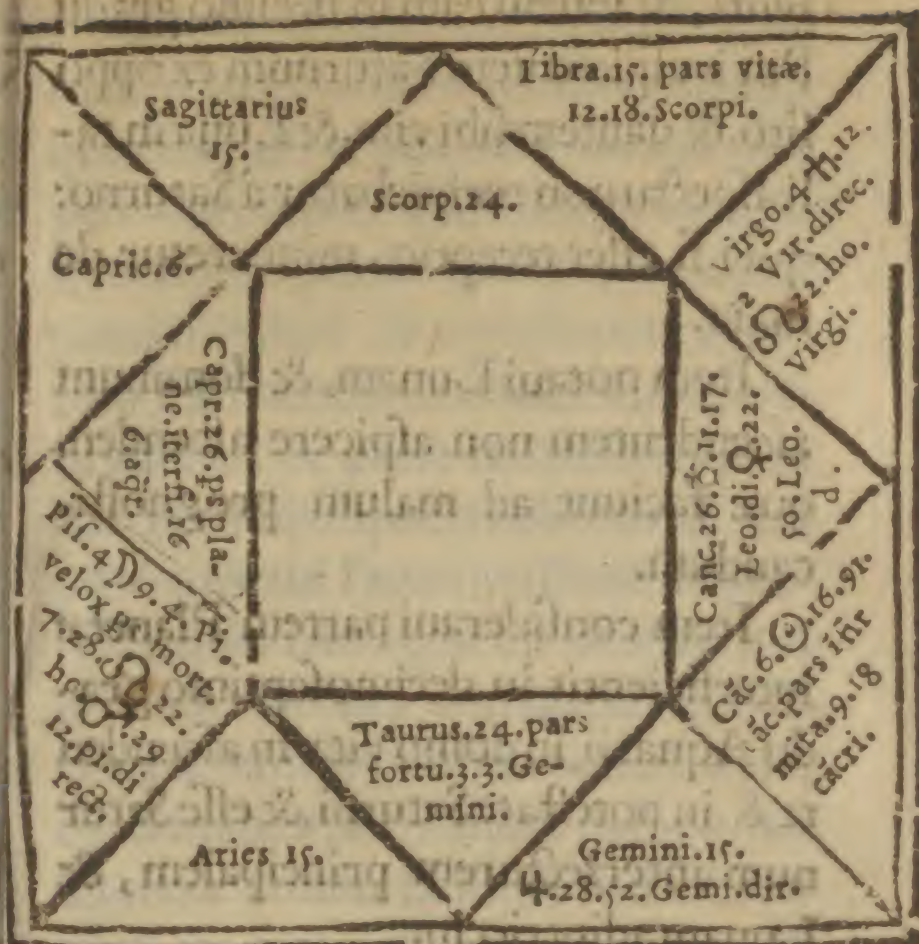 Sagittarius
15.
Libra.15. pars vitæ.
12.18.Scorpi.
Scorp.24.
Virgo.4 ♄.12.
2 Vir.direc.
☊ 22.ho.
virgi.
Capric.6.
Capr.26.ps pla-
6 sagi.
Canc.26.☿.11.17.
Leo.di♀.22.
50.Leo.
d.
Pis.4☽9.4.Pi.
velox ps mort.
7.28.☊.22.
♂.29
12.pi.di
rect.
Cãc.6.☉.16.91.
cãc.pars iñr
mita.9.18
cãcri.
Taurus.24.pars
fortu.3.3.Ge-
mini.
Aries 15.
Gemini.15.
♃.28.52.Gemi.dir.